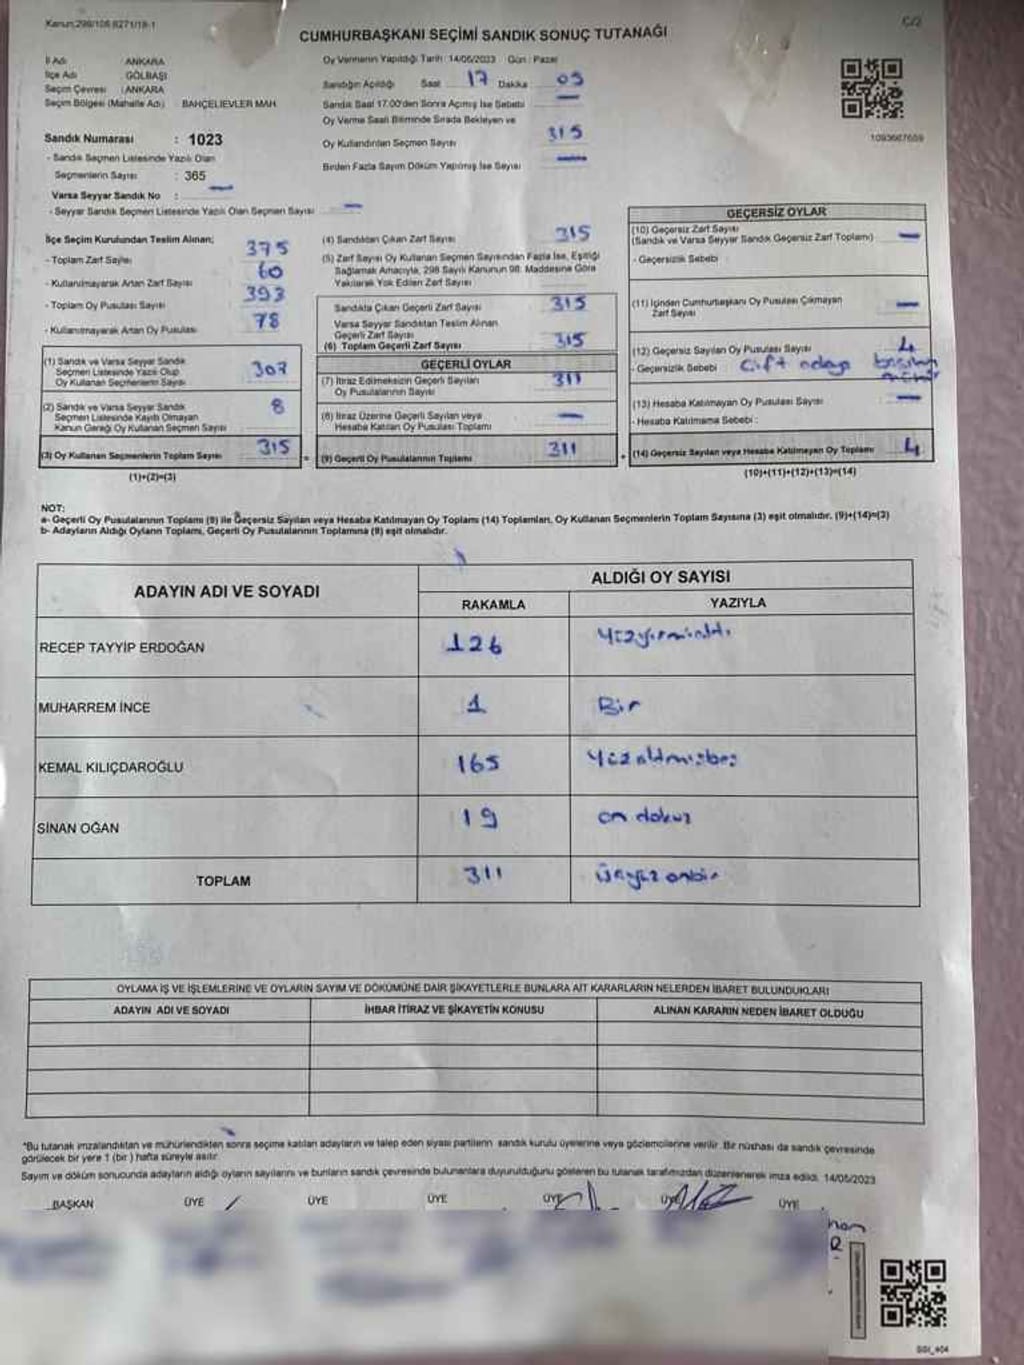 Kanun:298/106 6271/18-1
C/2
CUMHURBAŞKANI SEÇİMİ SANDIK SONUÇ TUTANAĞI
İl Adı : ANKARA
İlçe Adı : GÖLBAŞI
Seçim Çevresi : ANKARA
Seçim Bölgesi (Mahalle Adı) : BAHÇELİEVLER MAH.
Sandık Numarası : 1023
- Sandık Seçmen Listesinde Yazılı Olan
Seçmenlerin Sayısı : 365
Varsa Seyyar Sandık No : —
- Seyyar Sandık Seçmen Listesinde Yazılı Olan Seçmen Sayısı : —
Oy Vermenin Yapıldığı Tarih : 14/05/2023 Gün : Pazar
Sandığın Açıldığı Saat 17 Dakika 05
Sandık Saat 17.00'den Sonra Açılmış İse Sebebi —
Oy Verme Saati Bitiminde Sırada Bekleyen ve
Oy Kullandırılan Seçmen Sayısı 315
Birden Fazla Sayım Döküm Yapılmış İse Sayısı —
1093667659
İlçe Seçim Kurulundan Teslim Alınan;
- Toplam Zarf Sayısı 375
- Kullanılmayarak Artan Zarf Sayısı 60
- Toplam Oy Pusulası Sayısı 393
- Kullanılmayarak Artan Oy Pusulası 78
(1) Sandık ve Varsa Seyyar Sandık
Seçmen Listesinde Yazılı Olup
Oy Kullanan Seçmenlerin Sayısı 307
(2) Sandık ve Varsa Seyyar Sandık
Seçmen Listesinde Kayıtlı Olmayan
Kanun Gereği Oy Kullanan Seçmen Sayısı 8
(3) Oy Kullanan Seçmenlerin Toplam Sayısı 315
(1)+(2)=(3)
(4) Sandıktan Çıkan Zarf Sayısı 315
(5) Zarf Sayısı Oy Kullanan Seçmen Sayısından Fazla İse, Eşitliği
Sağlamak Amacıyla, 298 Sayılı Kanunun 98. Maddesine Göre
Yakılarak Yok Edilen Zarf Sayısı
Sandıkta Çıkan Geçerli Zarf Sayısı 315
Varsa Seyyar Sandıktan Teslim Alınan
Geçerli Zarf Sayısı
(6) Toplam Geçerli Zarf Sayısı 315
GEÇERLİ OYLAR
(7) İtiraz Edilmeksizin Geçerli Sayılan
Oy Pusulasının Sayısı 311
(8) İtiraz Üzerine Geçerli Sayılan veya
Hesaba Katılan Oy Pusulası Toplamı —
= (9) Geçerli Oy Pusulalarının Toplamı 311 +
GEÇERSİZ OYLAR
(10) Geçersiz Zarf Sayısı
(Sandık ve Varsa Seyyar Sandık Geçersiz Zarf Toplamı) —
- Geçersizlik Sebebi :
(11) İçinden Cumhurbaşkanı Oy Pusulası Çıkmayan
Zarf Sayısı —
(12) Geçersiz Sayılan Oy Pusulası Sayısı 4
- Geçersizlik Sebebi Çift adaya
(13) Hesaba Katılmayan Oy Pusulası Sayısı —
- Hesaba Katılmama Sebebi :
(14) Geçersiz Sayılan veya Hesaba Katılmayan Oy Toplamı 4
(10)+(11)+(12)+(13)=(14)
NOT:
a- Geçerli Oy Pusulalarının Toplamı (9) ile Geçersiz Sayılan veya Hesaba Katılmayan Oy Toplamı (14) Toplamları, Oy Kullanan Seçmenlerin Toplam Sayısına (3) eşit olmalıdır. (9)+(14)=(3)
b- Adayların Aldığı Oyların Toplamı, Geçerli Oy Pusulalarının Toplamına (9) eşit olmalıdır.
ADAYIN ADI VE SOYADI
ALDIĞI OY SAYISI
RAKAMLA YAZIYLA
RECEP TAYYİP ERDOĞAN 126 Yüzyirmialtı
MUHARREM İNCE 1 Bir
KEMAL KILIÇDAROĞLU 165 Yüzaltmışbeş
SİNAN OĞAN 19 on dokuz
TOPLAM 311 Üçyüz onbir
OYLAMA İŞ VE İŞLEMLERİNE VE OYLARIN SAYIM VE DÖKÜMÜNE DAİR ŞİKAYETLERLE BUNLARA AİT KARARLARIN NELERDEN İBARET BULUNDUKLARI
ADAYIN ADI VE SOYADI İHBAR İTİRAZ VE ŞİKAYETİN KONUSU ALINAN KARARIN NEDEN İBARET OLDUĞU
*Bu tutanak imzalandıktan ve mühürlendikten sonra seçime katılan adayların ve talep eden siyasi partilerin sandık kurulu üyelerine veya gözlemcilerine verilir. Bir nüshası da sandık çevresinde
görülecek bir yere 1 (bir) hafta süreyle asılır.
Sayım ve döküm sonucunda adayların aldığı oyların sayılarını ve bunların sandık çevresinde bulunanlara duyurulduğunu gösteren bu tutanak tarafımızdan düzenlenerek imza edildi. 14/05/2023
BAŞKAN ÜYE ÜYE ÜYE ÜYE ÜYE ÜYE